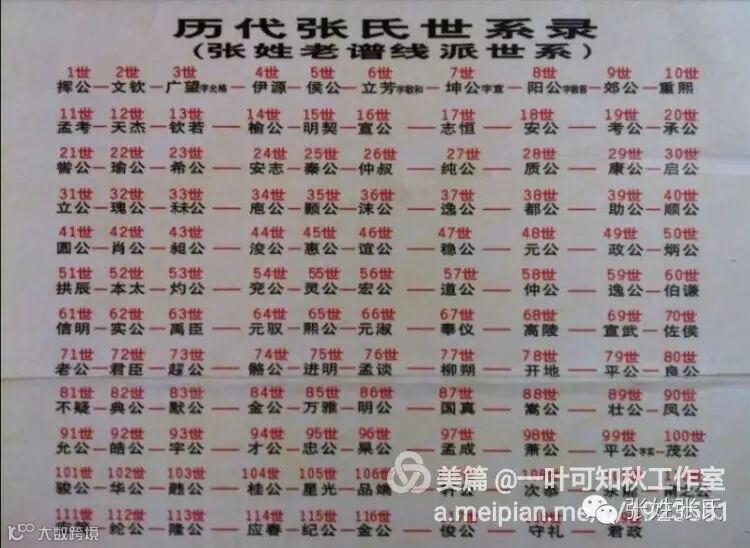 历代张氏世系录
(张姓老谱线派世系)
1世 2世 3世 4世 5世 6世 7世 8世 9世 10世
挥公—文钦—广望字允格—伊源—侯公—立芳字敬和—坤公字宣—阳公字敬吾—郊公—重熙
11世 12世 13世 14世 15世 16世 17世 18世 19世 20世
孟考—天杰—钦若—榆公—明契—宣公—志恒—安公—考公—承公
21世 22世 23世 24世 25世 26世 27世 28世 29世 30世
喾公—瑜公—希公—安志—秦公—仲叔—纯公—质公—康公—启公
31世 32世 33世 34世 35世 36世 37世 38世 39世 40世
立公—瑰公—秝公—庖公—颢公—沫公—逸公—都公—助公—顺公
41世 42世 43世 44世 45世 46世 47世 48世 49世 50世
圆公—肖公—昶公—浚公—惠公—谊公—稳公—元公—政公—炳公
51世 52世 53世 54世 55世 56世 57世 58世 59世 60世
拱辰—本太—灼公—兖公—灵公—宏公—道公—仲公—逸公—伯谦
61世 62世 63世 64世 65世 66世 67世 68世 69世 70世
信明—实公—禹臣—元驭—熙公—元淑—奉仪—高陵—宣武—佐侯
71世 72世 73世 74世 75世 76世 77世 78世 79世 80世
老公—君臣—趯公—骼公—进明—孟谈—柳朔—开地—平公—良公
81世 82世 83世 84世 85世 86世 87世 88世 89世 90世
不疑—典公—默公—金公—万雅—明公—国真—嵩公—壮公—凤公
91世 92世 93世 94世 95世 96世 97世 98世 99世 100世
允公—皓公—字公—才公—忠公—杲公—孟成—萧公—平公字实—茂公
101世 102世 103世 104世 105世 106世
骏公—华公—韪公—桂公—星光—品端 次恭
美篇 @一叶可知秋工作室
111世 112世 113世 114世 115世 116世
纶公—隆公—应春—纪公—金公—俊公—守礼—君政
张姓张氏
大数跨境